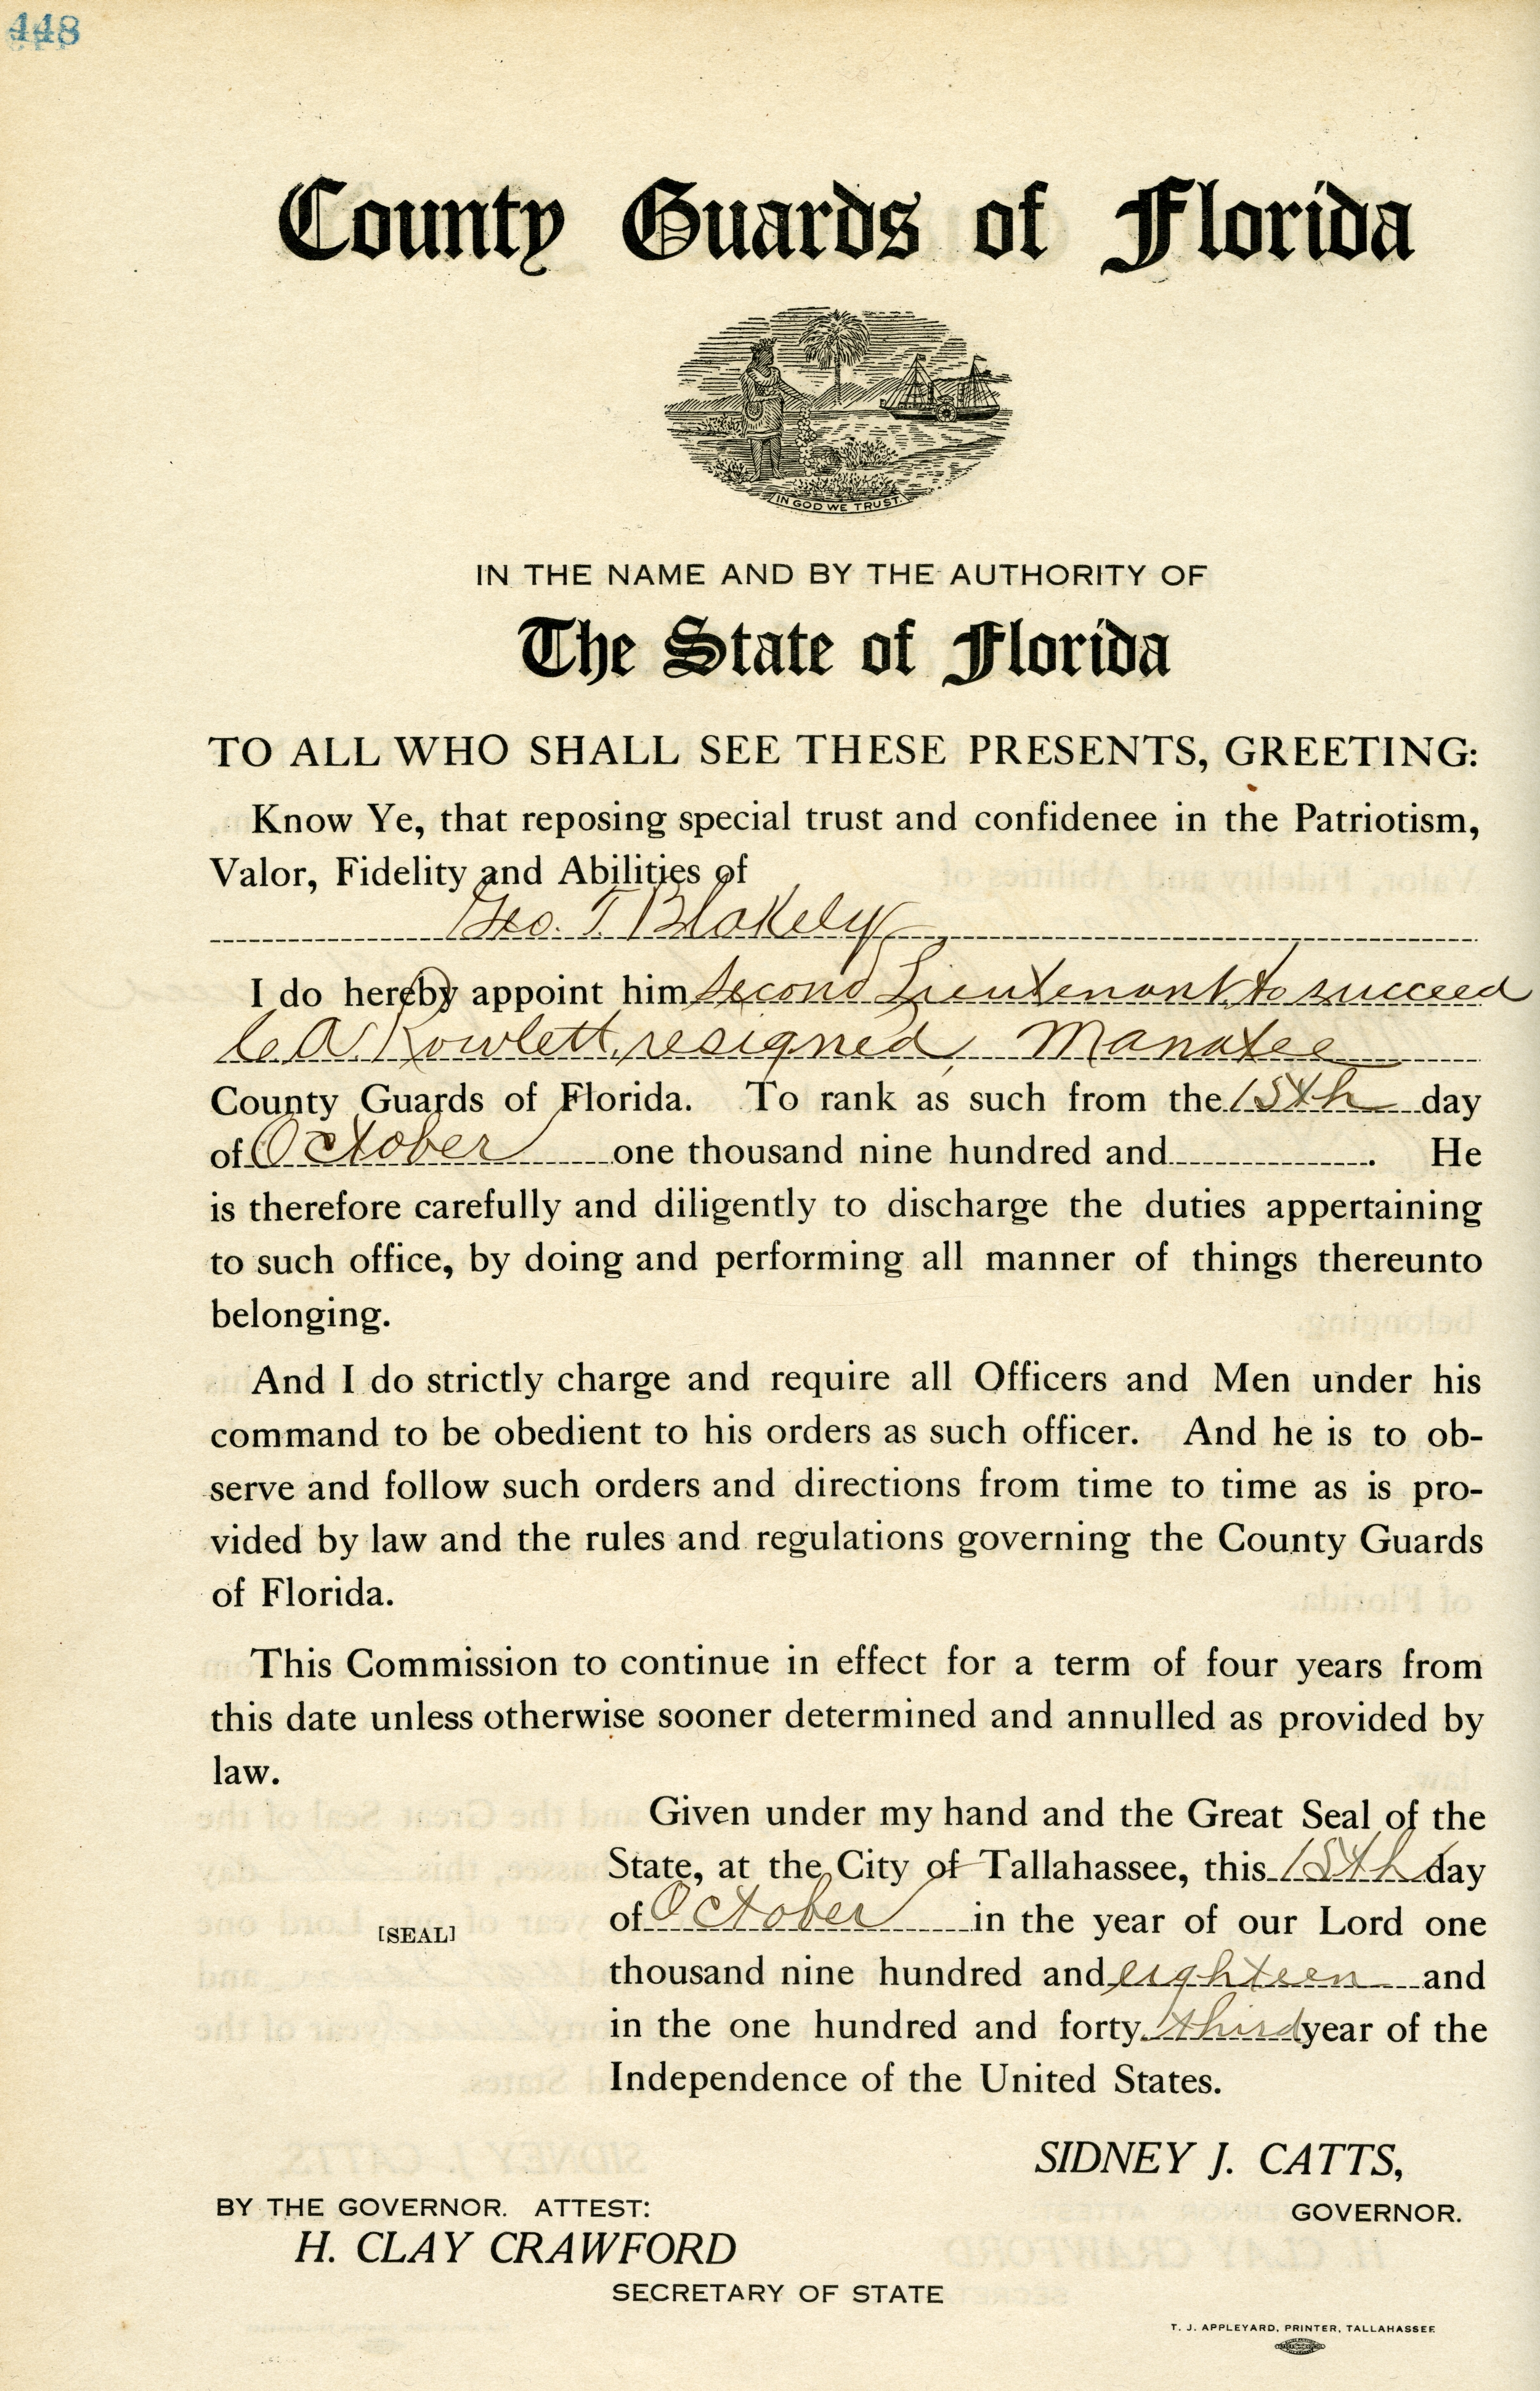 448
County Guards of Florida
IN GOD WE TRUST.
IN THE NAME AND BY THE AUTHORITY OF
The State of Florida
TO ALL WHO SHALL SEE THESE PRESENTS, GREETING:
Know Ye, that reposing special trust and confidenee in the Patriotism,
Valor, Fidelity and Abilities of
Geo. T. Blakely
I do hereby appoint him Second Lieutenant to succeed
C. A. Rowlett, resigned, Manatee
County Guards of Florida. To rank as such from the 15th day
of October one thousand nine hundred and . He
is therefore carefully and diligently to discharge the duties appertaining
to such office, by doing and performing all manner of things thereunto
belonging.
And I do strictly charge and require all Officers and Men under his
command to be obedient to his orders as such officer. And he is to ob-
serve and follow such orders and directions from time to time as is pro-
vided by law and the rules and regulations governing the County Guards
of Florida.
This Commission to continue in effect for a term of four years from
this date unless otherwise sooner determined and annulled as provided by
law.
Given under my hand and the Great Seal of the
State, at the City of Tallahassee, this 15th day
of October in the year of our Lord one
[SEAL]
thousand nine hundred and eighteen and
in the one hundred and forty third year of the
Independence of the United States.
SIDNEY J. CATTS,
GOVERNOR.
BY THE GOVERNOR. ATTEST:
H. CLAY CRAWFORD
SECRETARY OF STATE
T. J. APPLEYARD, PRINTER, TALLAHASSEE